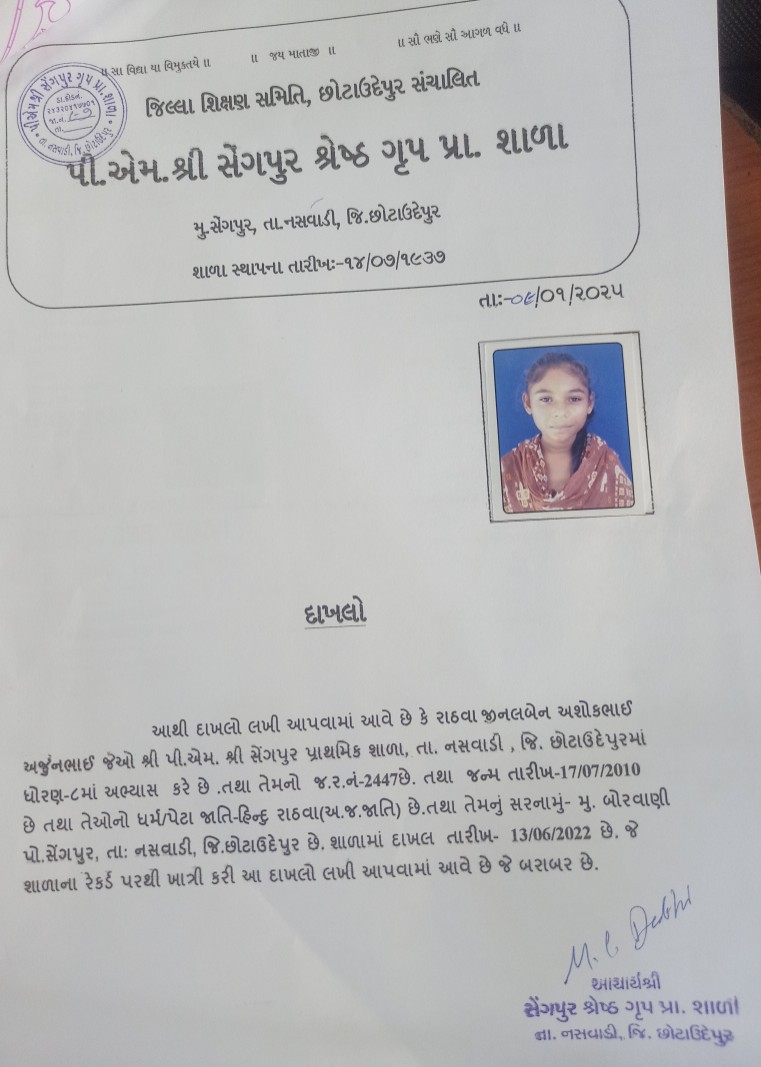 ॥ સા વિદ્યા યા વિમુક્તયે ॥ ॥ જય માતાજી ॥ ॥ સૌ ભણે સૌ આગળ વધે ॥
જિલ્લા શિક્ષણ સમિતિ, છોટાઉદેપુર સંચાલિત
પી.એમ.શ્રી સેંગપુર શ્રેષ્ઠ ગૃપ પ્રા. શાળા
મુ.સેંગપુર, તા.નસવાડી, જિ.છોટાઉદેપુર
શાળા સ્થાપના તારીખઃ-૧૪/૦૭/૧૯૩૭
પીએમશ્રી સેંગપુર ગૃપ પ્રા. શાળા
તા. નસવાડી, જિ. છોટાઉદેપુર
તાઃ-૦૯/૦૧/૨૦૨૫
દાખલો
આથી દાખલો લખી આપવામાં આવે છે કે રાઠવા જીનલબેન અશોકભાઈ
અર્જુનભાઈ જેઓ શ્રી પી.એમ. શ્રી સેંગપુર પ્રાથમિક શાળા, તા. નસવાડી , જિ. છોટાઉદેપુરમાં
ધોરણ-૮માં અભ્યાસ કરે છે .તથા તેમનો જ.ર.નં-2447છે. તથા જન્મ તારીખ-17/07/2010
છે તથા તેઓનો ધર્મ/પેટા જાતિ-હિન્દુ રાઠવા(અ.જ.જાતિ) છે.તથા તેમનું સરનામું- મુ. બોરવાણી
પો.સેંગપુર, તાઃ નસવાડી, જિ.છોટાઉદેપુર છે. શાળામાં દાખલ તારીખ- 13/06/2022 છે. જે
શાળાના રેકર્ડ પરથી ખાત્રી કરી આ દાખલો લખી આપવામાં આવે છે જે બરાબર છે.
M. C Dabhi
આચાર્યશ્રી
સેંગપુર શ્રેષ્ઠ ગૃપ પ્રા. શાળા
તા. નસવાડી, જિ. છોટાઉદેપુર